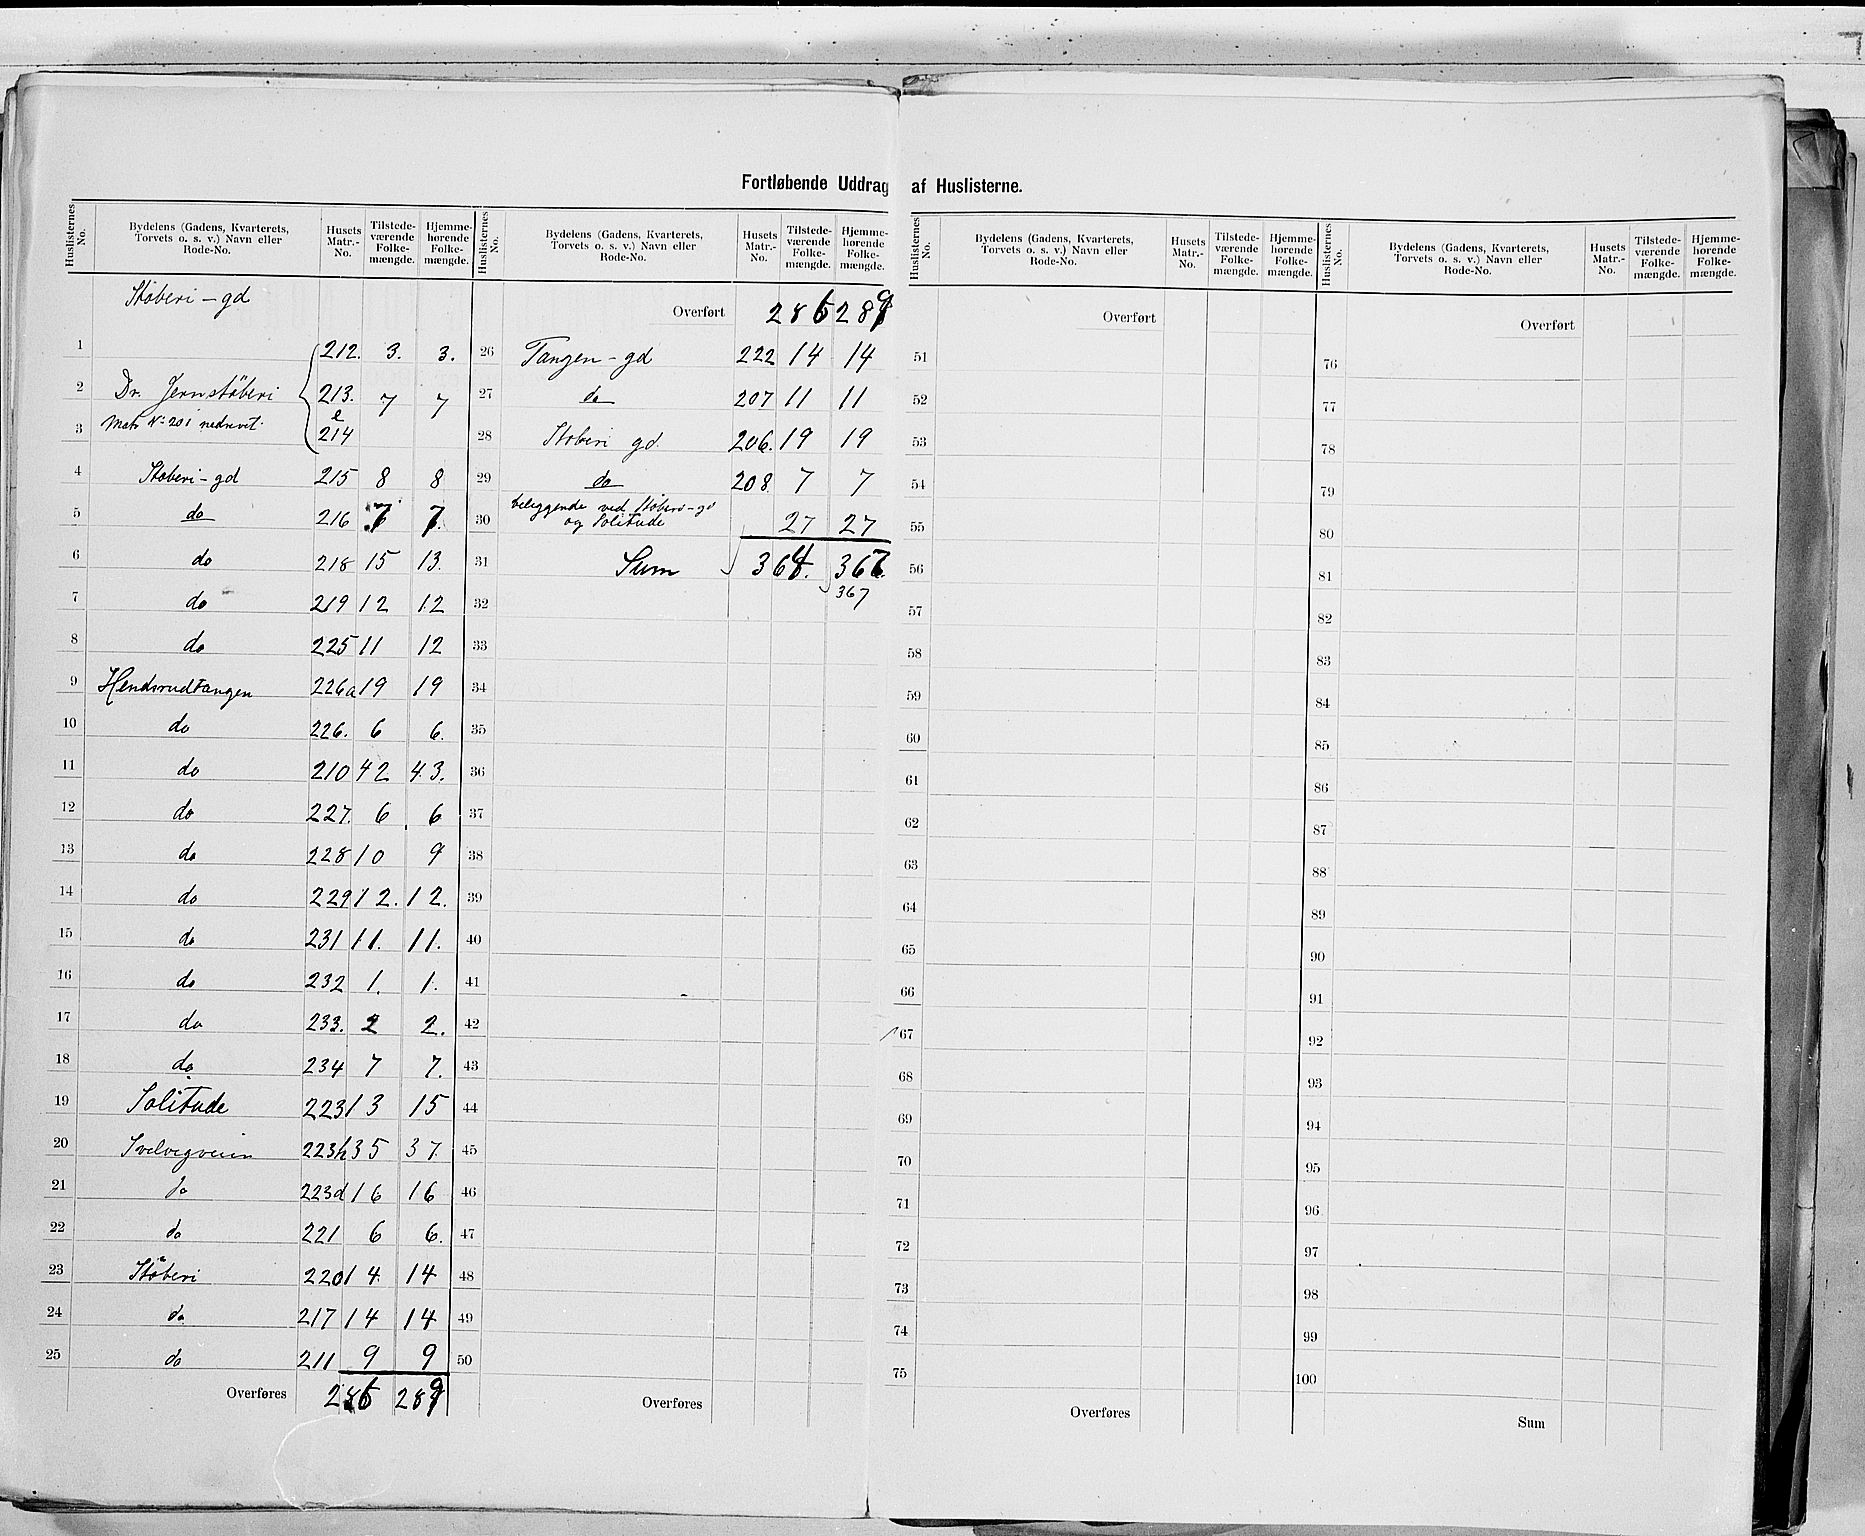 Fortløbende Uddrag af Huslisterne.
Huslisternes No. | Bydelens (Gadens, Kvarterets, Torvets o. s. v.) Navn eller Rode-No. | Husets Matr.-No. | Tilstedeværende Folkemængde. | Hjemmehørende Folkemængde.
Støberi-gd
1 | 212. | 3. | 3.
2 | Dr. Jernstøberi | 213. | 7 | 7
3 | Matr Nº 201 nedrevet. | e 214
4 | Støberi-gd | 215 | 8 | 8
5 | do | 216 | 7 | 7.
6 | do | 218 | 15 | 13.
7 | do | 219 | 12 | 12
8 | do | 225 | 11 | 12
9 | Hendsrudtangen | 226a | 19 | 19
10 | do | 226. | 6 | 6.
11 | do | 210 | 42 | 43.
12 | do | 227. | 6 | 6
13 | do | 228 | 10 | 9
14 | do | 229 | 12. | 12.
15 | do | 231 | 11. | 11.
16 | do | 232 | 1. | 1.
17 | do | 233. | 2 | 2.
18 | do | 234 | 7 | 7.
19 | Solitude | 223 | 13 | 15
20 | Svelvigveien | 223h | 35 | 37.
21 | do | 223d | 16 | 16
22 | do | 221 | 6 | 6.
23 | Støberi | 220 | 14 | 14
24 | do | 217 | 14 | 14
25 | do | 211 | 9 | 9
Overføres | 286 | 289
Huslisternes No. | Bydelens (Gadens, Kvarterets, Torvets o. s. v.) Navn eller Rode-No. | Husets Matr.-No. | Tilstedeværende Folkemængde. | Hjemmehørende Folkemængde.
Overført | 286 | 289
26 | Tangen-gd | 222 | 14 | 14
27 | do | 207 | 11 | 11
28 | Støberi gd. | 206. | 19 | 19
29 | do | 208. | 7 | 7
30 | beliggende ved Støberi-gd og Solitude | 27 | 27
31 | Sum | 364. | 367.
32 | 367
33
34
35
36
37
38
39
40
41
42
43
44
45
46
47
48
49
50
Overføres
Huslisternes No. | Bydelens (Gadens, Kvarterets, Torvets o. s. v.) Navn eller Rode-No. | Husets Matr.-No. | Tilstedeværende Folkemængde. | Hjemmehørende Folkemængde.
Overført
51
52
53
54
55
56
57
58
59
60
61
62
63
64
65
66
67
68
69
70
71
72
73
74
75
Overføres
Huslisternes No. | Bydelens (Gadens, Kvarterets, Torvets o. s. v.) Navn eller Rode-No. | Husets Matr.-No. | Tilstedeværende Folkemængde. | Hjemmehørende Folkemængde.
Overført
76
77
78
79
80
81
82
83
84
85
86
87
88
89
90
91
92
93
94
95
96
97
98
99
100
Sum